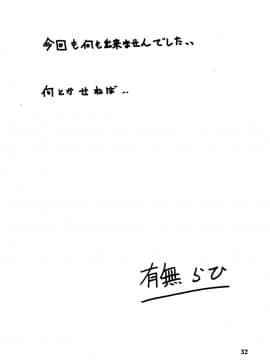 今回も何も出来ませんでした､､
何とかせねば...
有無らひ
52